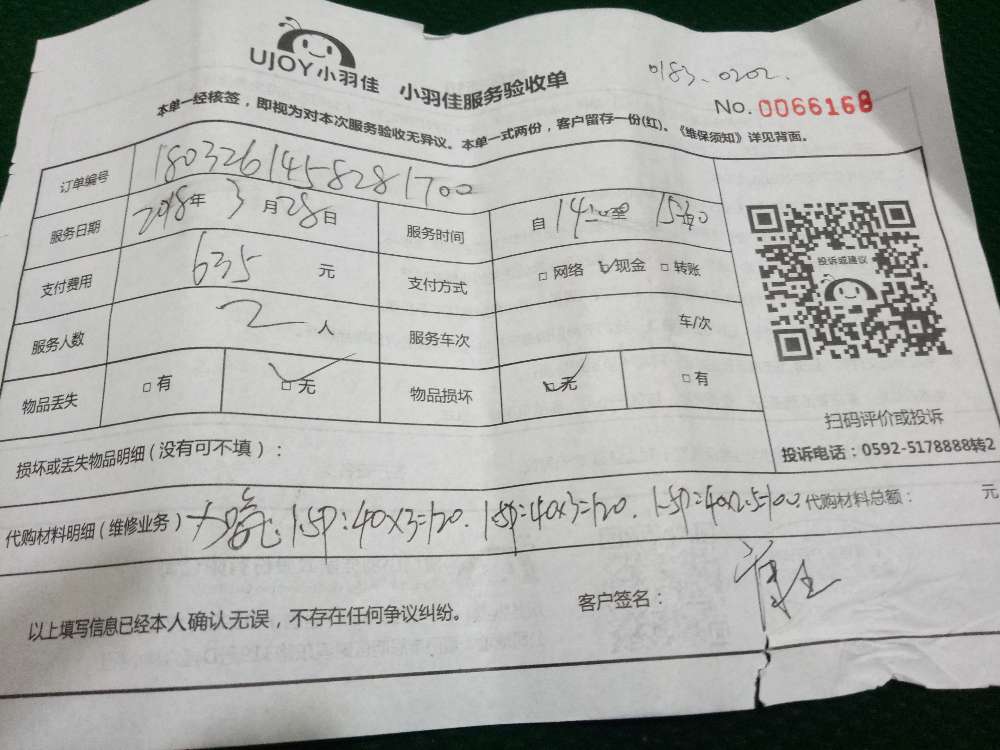 UJOY小羽佳 小羽佳服务验收单
0183.0202.
No. 0066168
本单一经核签，即视为对本次服务验收无异议。本单一式两份，客户留存一份(红)。《维保须知》详见背面。
订单编号 1803261458281700
服务日期 2018年 3月28日 服务时间 自14 至 15
支付费用 635 元 支付方式 □网络 □现金 □转账
投诉或建议
服务人数 2 人 服务车次 车/次
物品丢失 □有 □无 物品损坏 □无 □有
扫码评价或投诉
投诉电话：0592-5178888转2
损坏或丢失物品明细(没有可不填)：
代购材料明细(维修业务) 1.5P:40×3=120. 1.5P:40×3=120. 1.5P:40×2.5=100 代购材料总额： 元
以上填写信息已经本人确认无误，不存在任何争议纠纷。 客户签名：